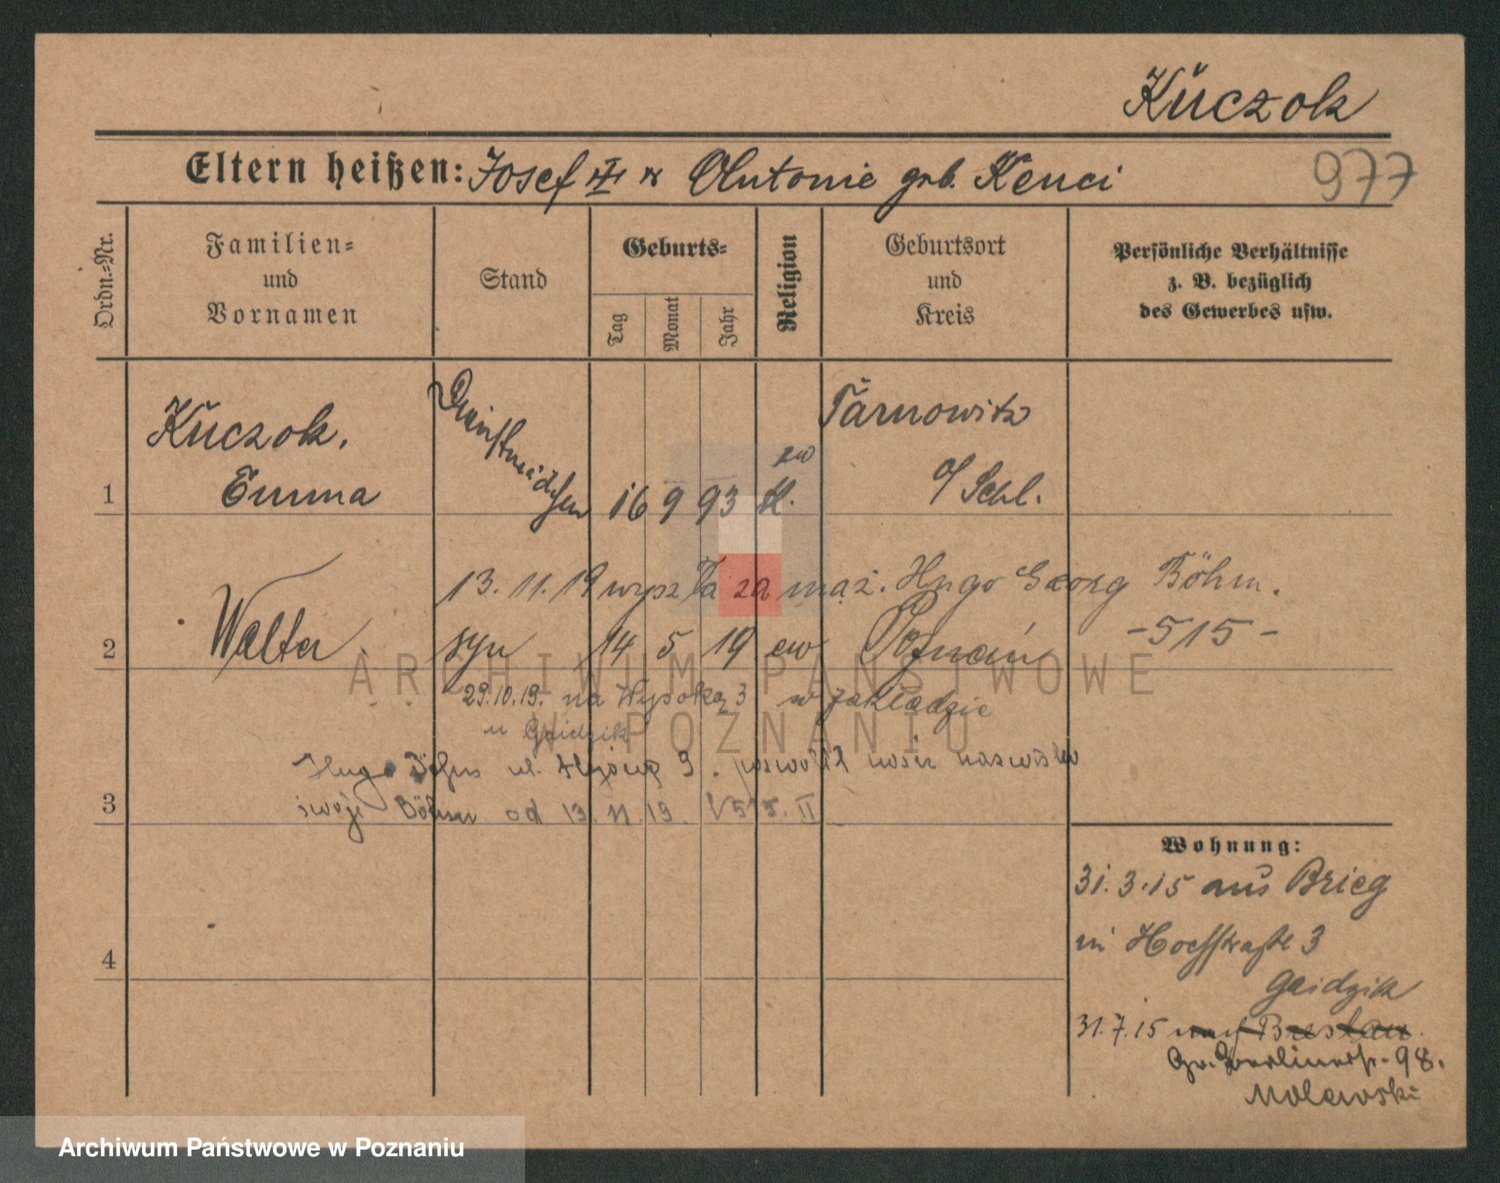 Kuczok
Eltern heißen: Josef u Antonie geb. Kenci
977
Ordn.=Nr.
Familien=
und
Vornamen
Stand
Geburts=
Tag
Monat
Jahr
Religion
Geburtsort
und
Kreis
Persönliche Verhältnisse
z. B. bezüglich
des Gewerbes usw.
1
Kuczok.
Emma
Dienstmädchen
16 9 93
ew
k.
Tarnowitz
O/Schl.
13.11.19 wyszła za mąż. Hugo Georg Böhm.
-515-
2
Walter
syn
14 5 19 ew Poznań
29.10.19. na Wysoką 3 w zakładzie
u Gaidzik
3
Hugo ul. 3. nosić nazwisko
swoje Böhm od 13.11.19. II
4
Wohnung:
31.3.15 aus Brieg
in Hochstraße 3
Gaidzik
31.7.15 nach Breslau
Gr. Berlinerstr. 98.
Molewski
ARCHIWUM PAŃSTWOWE
W POZNANIU
Archiwum Państwowe w Poznaniu